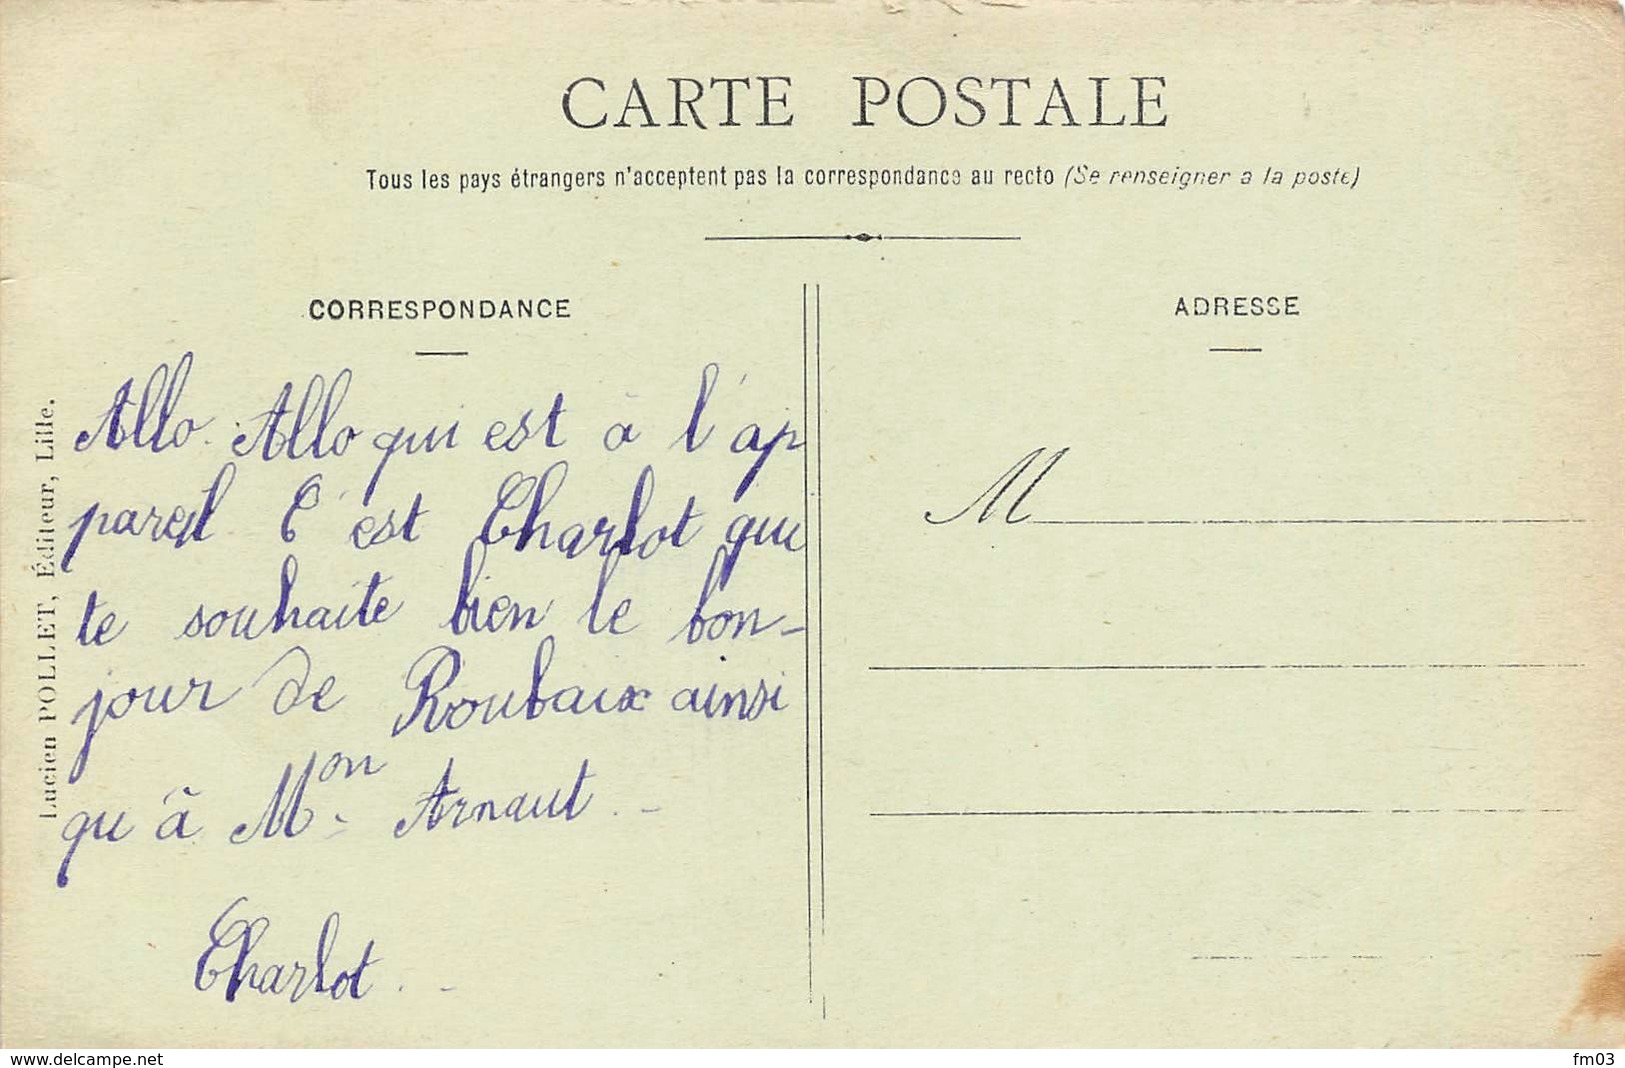 CARTE POSTALE
Tous les pays étrangers n'acceptent pas la correspondance au recto (Se renseigner a la poste)
CORRESPONDANCE
Allo. Allo qui est à l'ap
pareil C'est Charlot qui
te souhaite bien le bon-
jour de Roubaix ainsi
qu'à Mon. Arnaut. -
Charlot. -
Lucien POLLET, Éditeur, Lille.
ADRESSE
M
www.delcampe.net
fm03